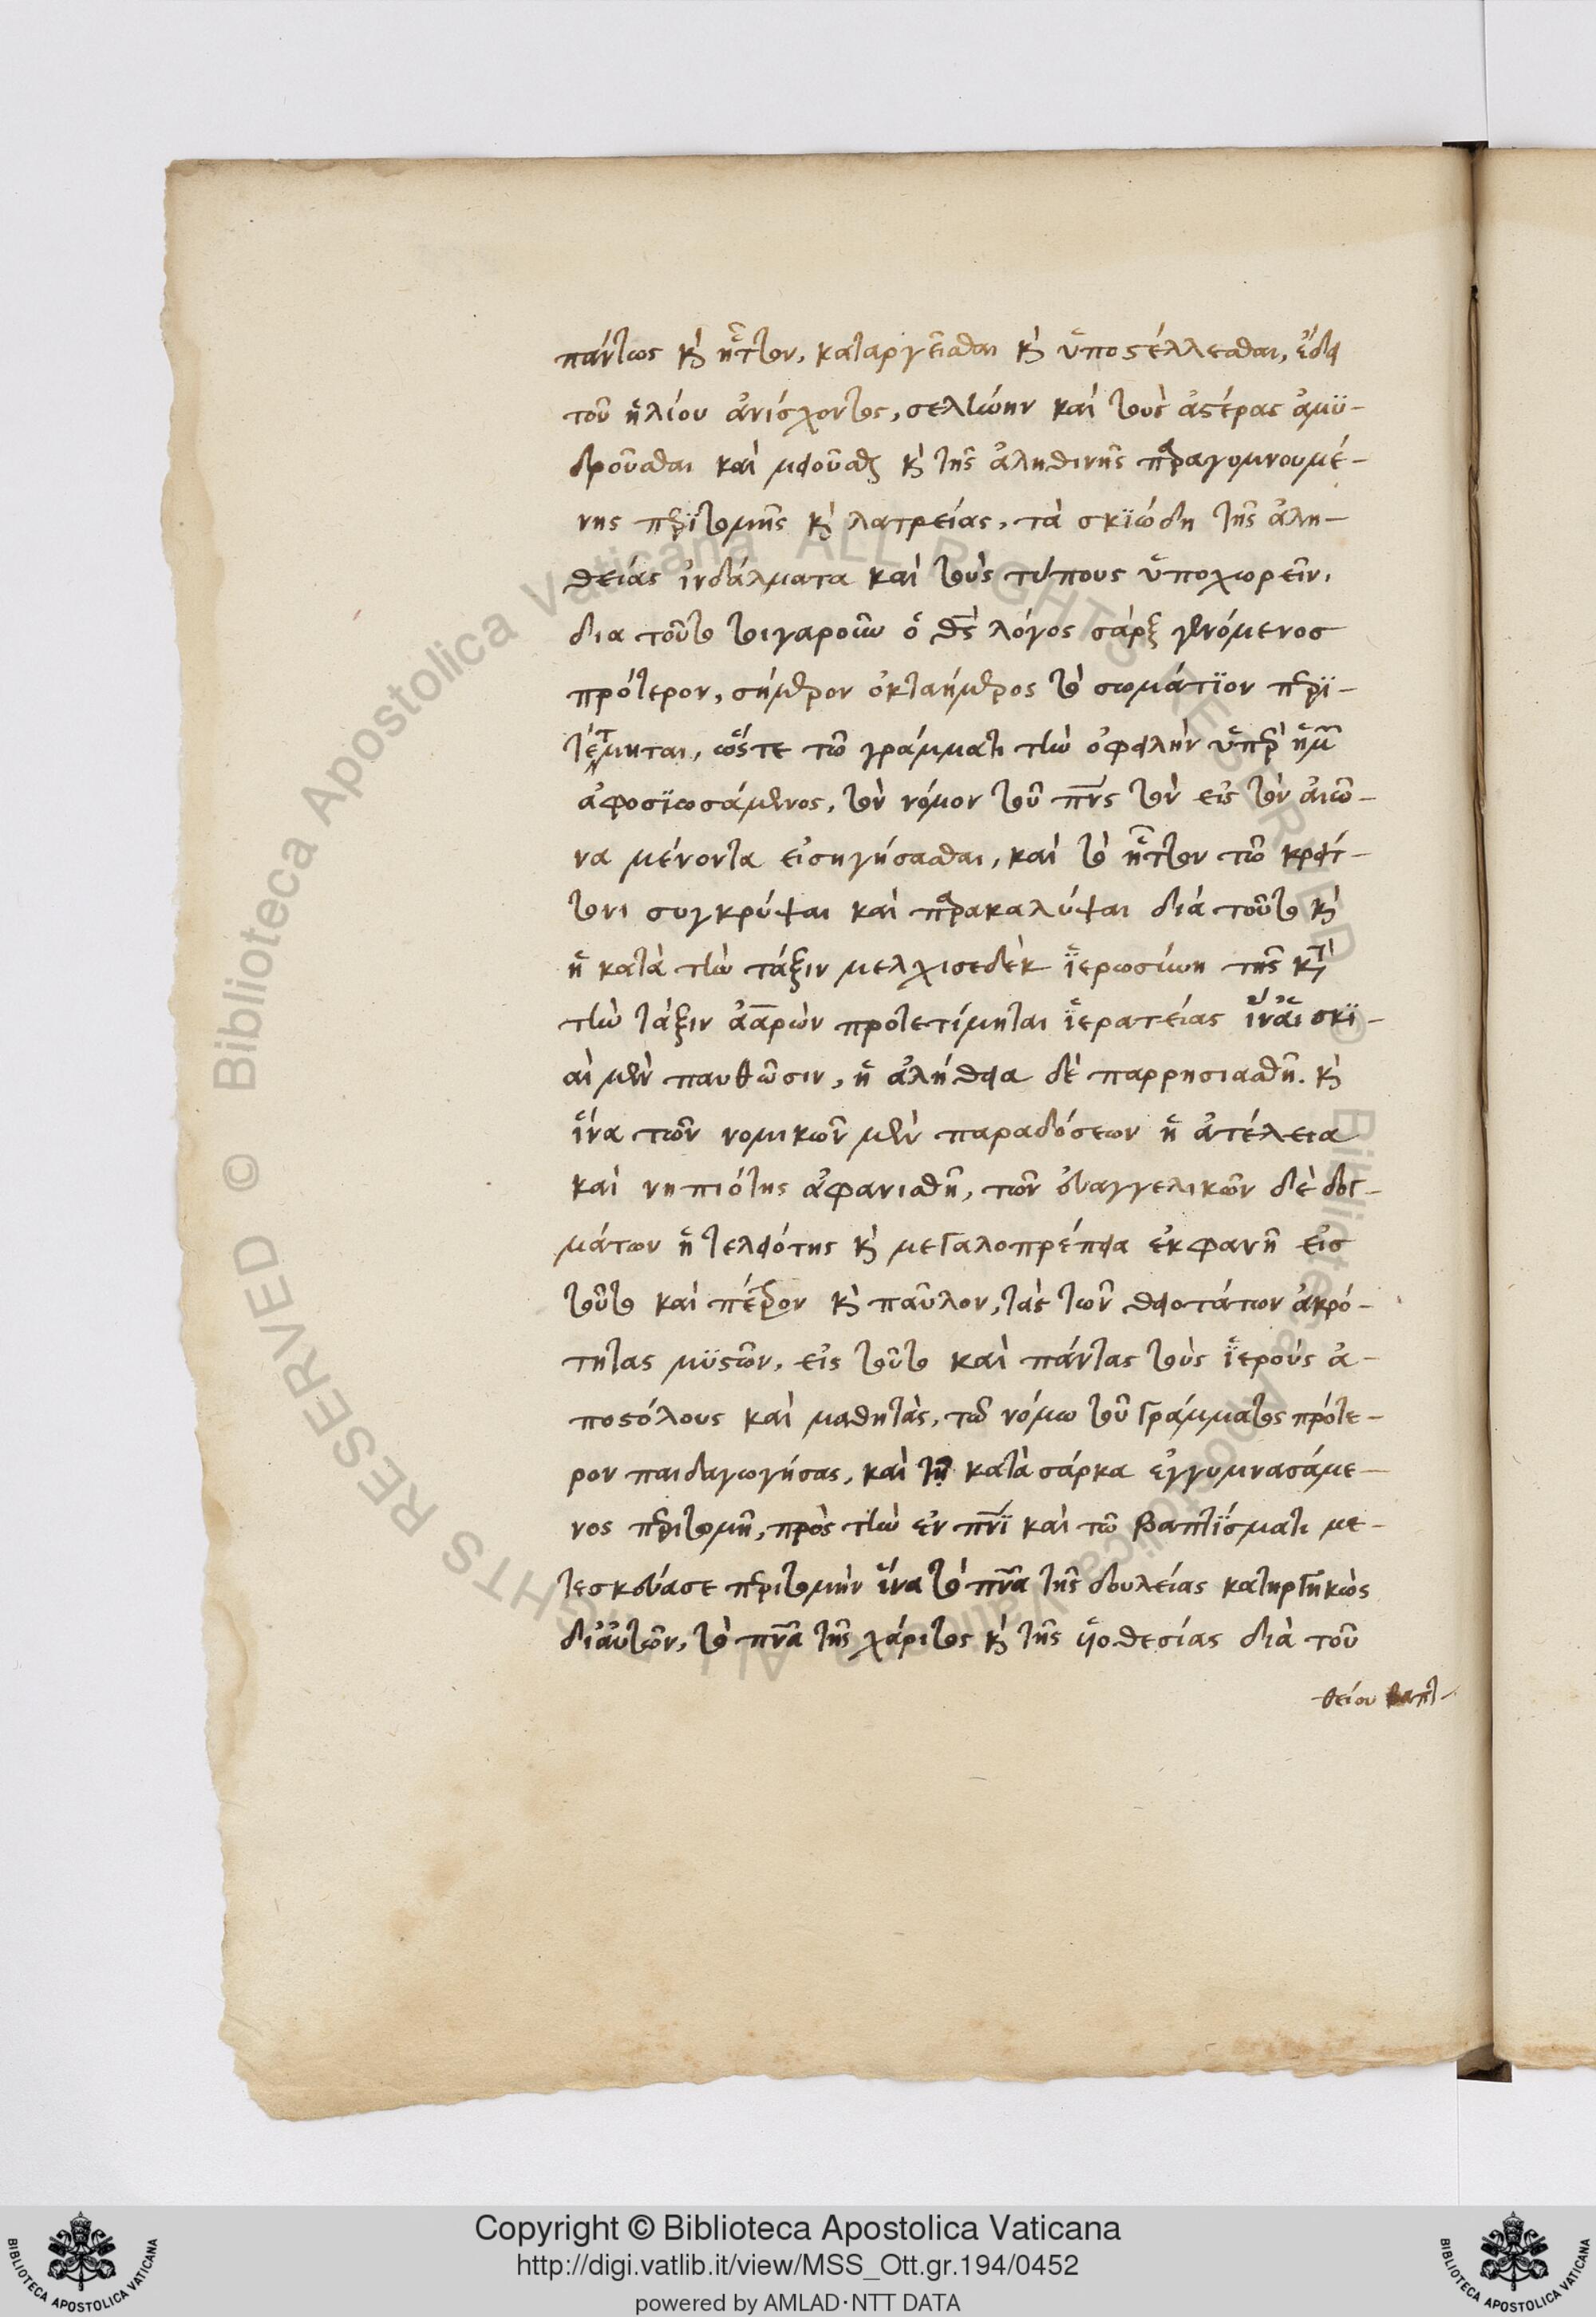 πάντως κ̀ ἧττον, καταργεῖσθαι κ̀ ὑποστέλλεσθαι, ἔδει
τοῦ ἡλίου ἀνίσχοντος, σελήνην καὶ τοὺς ἀστέρας ἀμϋ-
δροῦσθαι καὶ μειοῦσθαι κ̀ τῆς ἀληθινῆς παραγυμνουμέ-
νης περϊτομῆς κ̀ λατρείας, τὰ σκϊώδη τῆς ἀλη-
θείας ἰνδάλματα καὶ τοὺς τύπους ὑποχωρεῖν,
δια τοῦτο τοιγαροῦν ὁ θς̄ λόγος σὰρξ γενόμενος
πρότερον, σήμερον ὀκταήμερος τὸ σωμάτϊον περϊ-
τέτμηται, ὥστε τῶ γράμματι τὴν ὀφειλὴν ὑπὲρ ἡμῶν
ἀφοσϊωσάμενος, τὸν νόμον τοῦ πν̄ς τὸν εἰς τὸν ἀιῶ-
να μένοντα εἰσηγήσασθαι, καὶ τὸ ἧττον τῶ κρείτ-
τονι συγκρύψαι καὶ παρακαλύψαι διά τοῦτο κ̀
ἡ κατὰ τὴν τάξιν μελχισεδὲκ ἱερωσύνη τῆς κτ̀
τὴν τάξιν ἀαρὼν προτετίμηται ἱερατείας ἵνα αἱ σκϊ-
αὶ μὲν παυθῶσιν, ἡ ἀλήθεια δὲ παρρησιασθῆ. κ̀
ἵνα τῶν νομικῶν μὲν παραδόσεων ἡ ἀτέλεια
καὶ νηπιότης ἀφανισθῆ, τῶν ἐυαγγελικῶν δὲ δογ-
μάτων ἡ τελειότης κ̀ μεγαλοπρέπεια ἐκφανῆ εἰς
τοῦτο καὶ πέτρον κ̀ παῦλον, τὰς τῶν θειοτάτων ἀκρό-
τητας μϋστῶν, εἰς τοῦτο καὶ πάντας τοὺς ἱερούς ἀ-
ποστόλους καὶ μαθητὰς, τῶ νόμω τοῦ γράμματος πρότε-
ρον παιδαγωγήσας, καὶ τῆ κατὰ σάρκα ἐγγυμνασάμε-
νος περιτομῆ, πρὸς τὴν ἐν πν̄ϊ καὶ τῶ βαπτίσματι με-
τεσκεύασε περιτομὴν ἵνα τὸ πν̄α τῆς δουλείας κατηργηκὼς
δι᾽ἀυτῶν, τὸ πν̄α τῆς χάριτος κ̀ τῆς ὑϊοθεσίας διὰ τοῦ
θείου βαπτ-
Copyright © Biblioteca Apostolica Vaticana
http://digi.vatlib.it/view/MSS_Ott.gr.194/0452
powered by AMLAD·NTT DATA